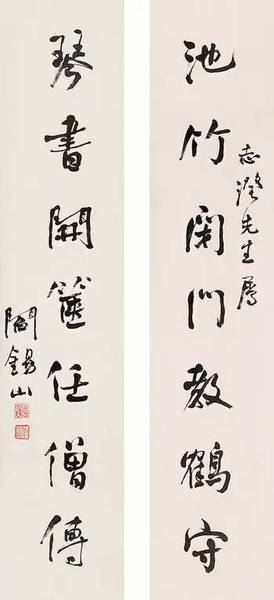 志澄先生屬
池竹閉門教鶴守
琴書開篋任僧傳
閻錫山